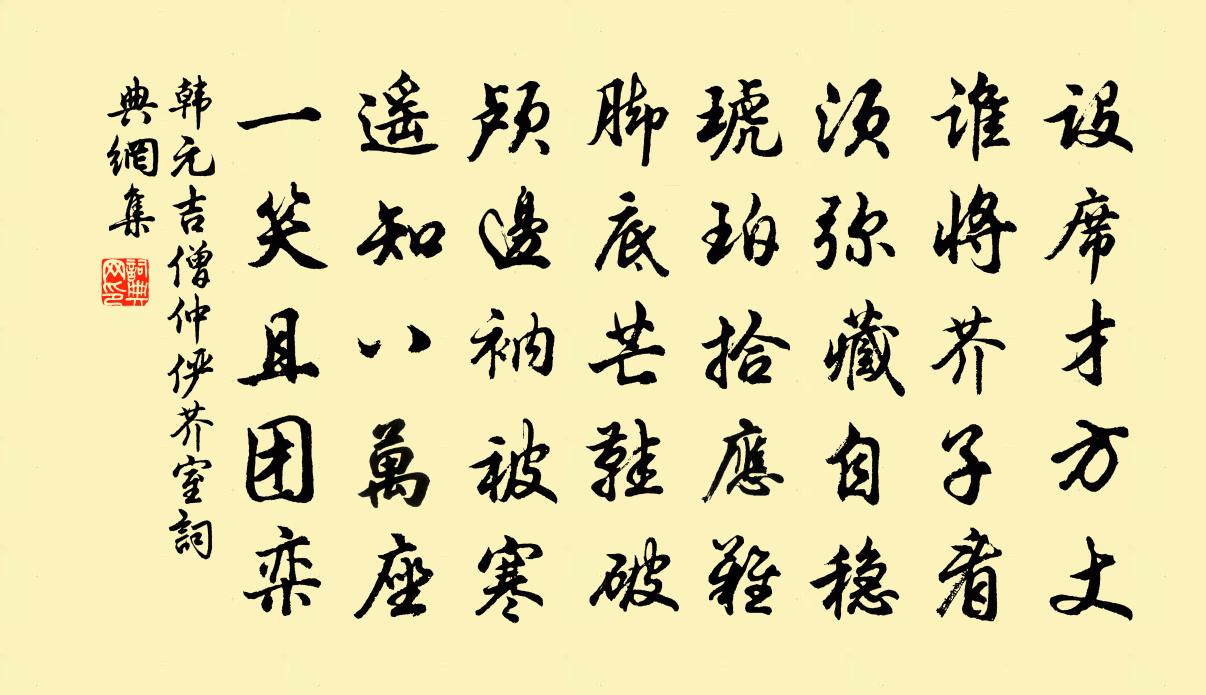 設席才方丈
誰將芥子看
須弥藏自穏
琥珀拾應難
脚底芒鞋破
頭邊衲被寒
遥知八萬座
一笑且团栾
韩元吉僧仲俨芥室詞
典網集
詞典
网印